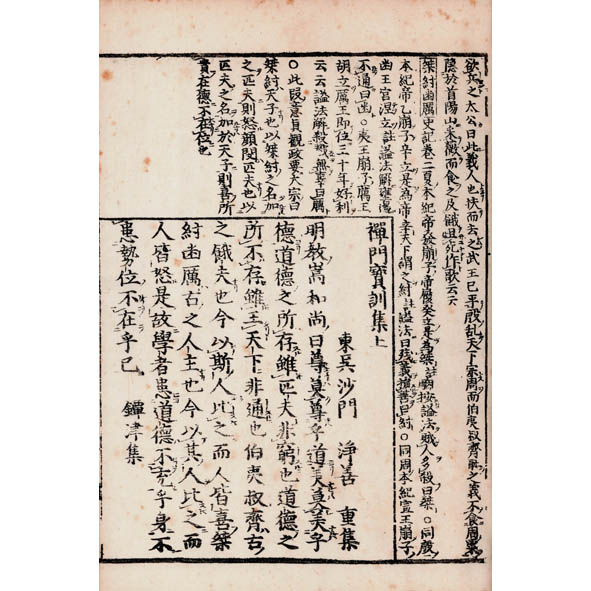 欲兵之太公曰此義人也扶而去之武王已平殷乱天下宗周而伯夷叔齊恥之義不食周粟
隱於首陽山采薇而食之及餓且死作歌云云
桀紂幽厲史記卷二夏本紀帝發崩子帝履癸立是為桀註謚法賊人多殺曰桀○同殷
本紀帝乙崩子辛立是為帝辛天下謂之紂註謚法曰殘義損善曰紂○同周本紀宣王崩子
幽王宮涅立註謚法解壅遏
不通曰幽○夷王崩子厲王
胡立厲王即位三十年好利
云云謚法解殺戮無辜曰厲
○此段意貞觀政要太宗曰
桀紂天子也以桀紂之名加
之匹夫則怒顏閔匹夫也以
匹夫之名加於天子則喜所
貴在德不在位也
禪門寶訓集上
東吳沙門　淨善　重集
明教嵩和尚曰尊莫尊乎道美莫美乎
德道德之所存雖匹夫非窮也道德之
所不存雖王天下非通也伯夷叔齊古
之餓夫也今以斯人比之而人皆喜桀
紂幽厲古之人主也今以其人比之而
人皆怒是故學者患道德不充乎身不
患勢位不在乎己　鐔津集